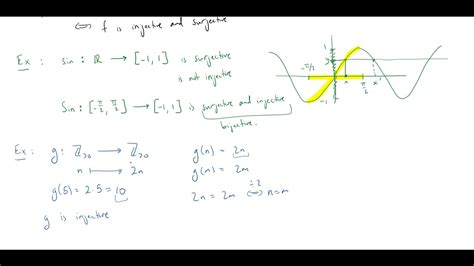 ⇔ f is injective and surjective
Ex: sin : ℝ → [-1, 1] is surjective
is not injective
Sin : [-π/2, π/2] → [-1, 1] is surjective and injective
bijective.
1
y
-π/2
x
π/2
x'
-1
Ex: g : ℤ>0 → ℤ>0
n ↦ 2n
g(5) = 2·5 = 10
g is injective
g(n) = 2n
g(m) = 2m
2n = 2m ⇔ n=m
÷2